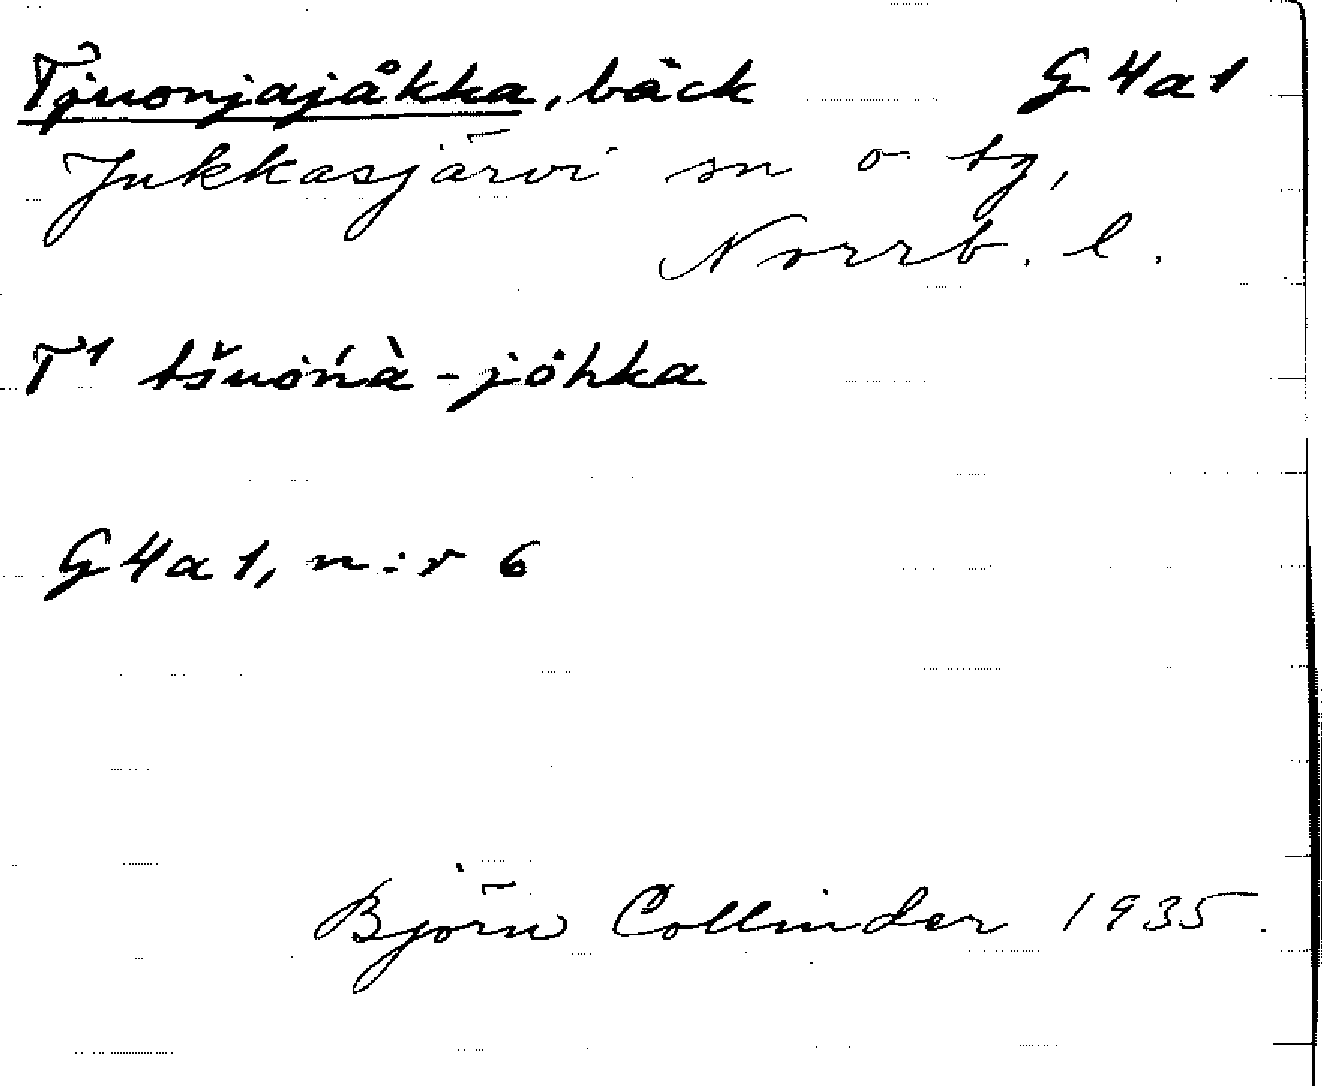 Tjuonjajåkka, bäck G4a1
Jukkasjärvi sn o tg,
Norrb. l.
T¹ tšuòńà-jòhka
G4a1, n:r 6
Björn Collinder 1935.